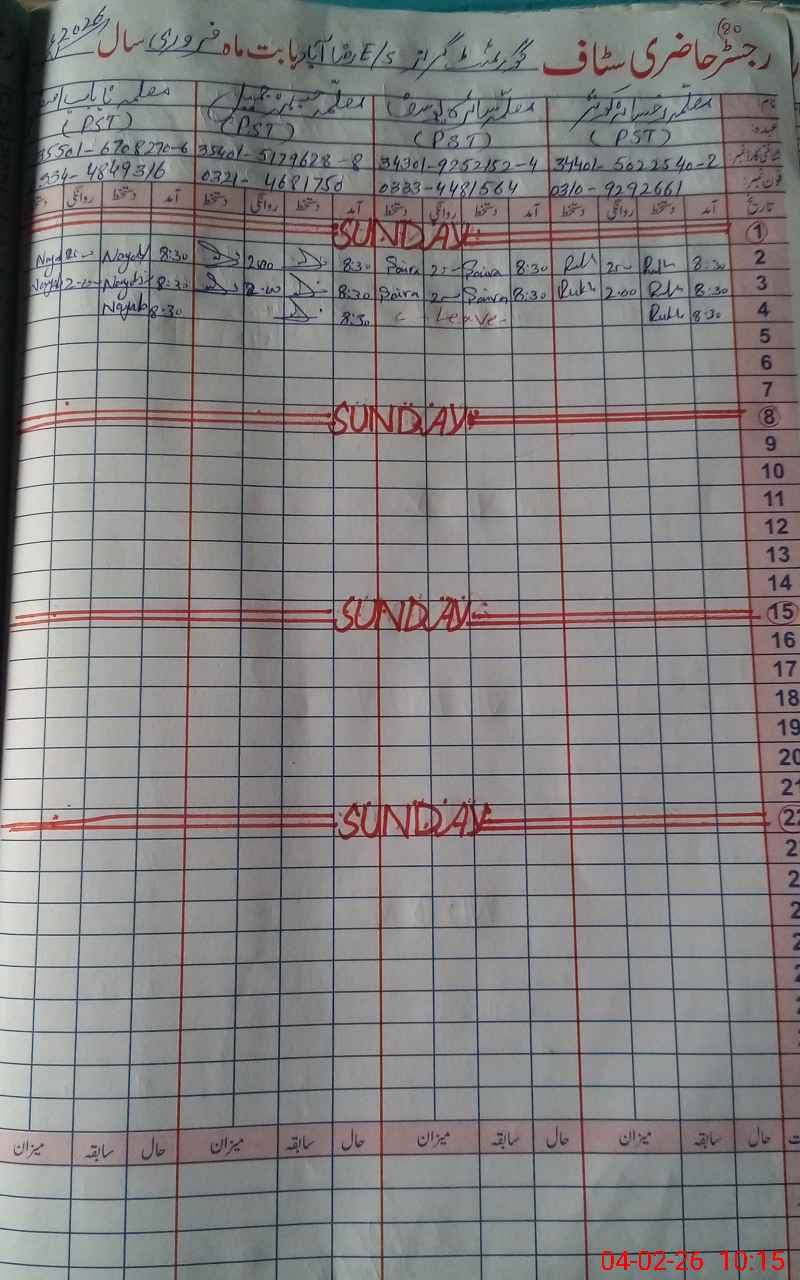 (80)
رجسٹر حاضری سٹاف گورنمنٹ گرلز E/S رضا آباد بابت ماہ فروری سال 2026ء
نام: معلمہ رخسانہ کوثر معلمہ سائرہ یوسف معلمہ جمیل معلمہ نایاب
عہدہ: (PST) (PST) (PST) (PST)
شناختی کارڈ نمبر: 34401-5022540-2 34301-9252152-4 35401-5129628-8 35501-6708270-6
فون نمبر: 0310-9292661 0333-4481564 0321-4681750 334-4849316
تاریخ آمد دستخط روانگی دستخط آمد دستخط روانگی دستخط آمد دستخط روانگی دستخط آمد دستخط روانگی دستخط
1 SUNDAY
2 8:30 Rukh 2:00 Rukh 8:30 Saira 2:00 Saira 8:30 2:00 8:30 Nayab 2:00 Nayab
3 8:30 Rukh 2:00 Rukh 8:30 Saira 2:00 Saira 8:30 2:00 8:30 Nayab 2:00 Nayab
4 8:30 Rukh C Leave 8:30 8:30 Nayab
5
6
7
8 SUNDAY
9
10
11
12
13
14
15 SUNDAY
16
17
18
19
20
21
22 SUNDAY
2
2
2
2
2
حال سابقہ میزان حال سابقہ میزان حال سابقہ میزان حال سابقہ میزان
04-02-26 10:15